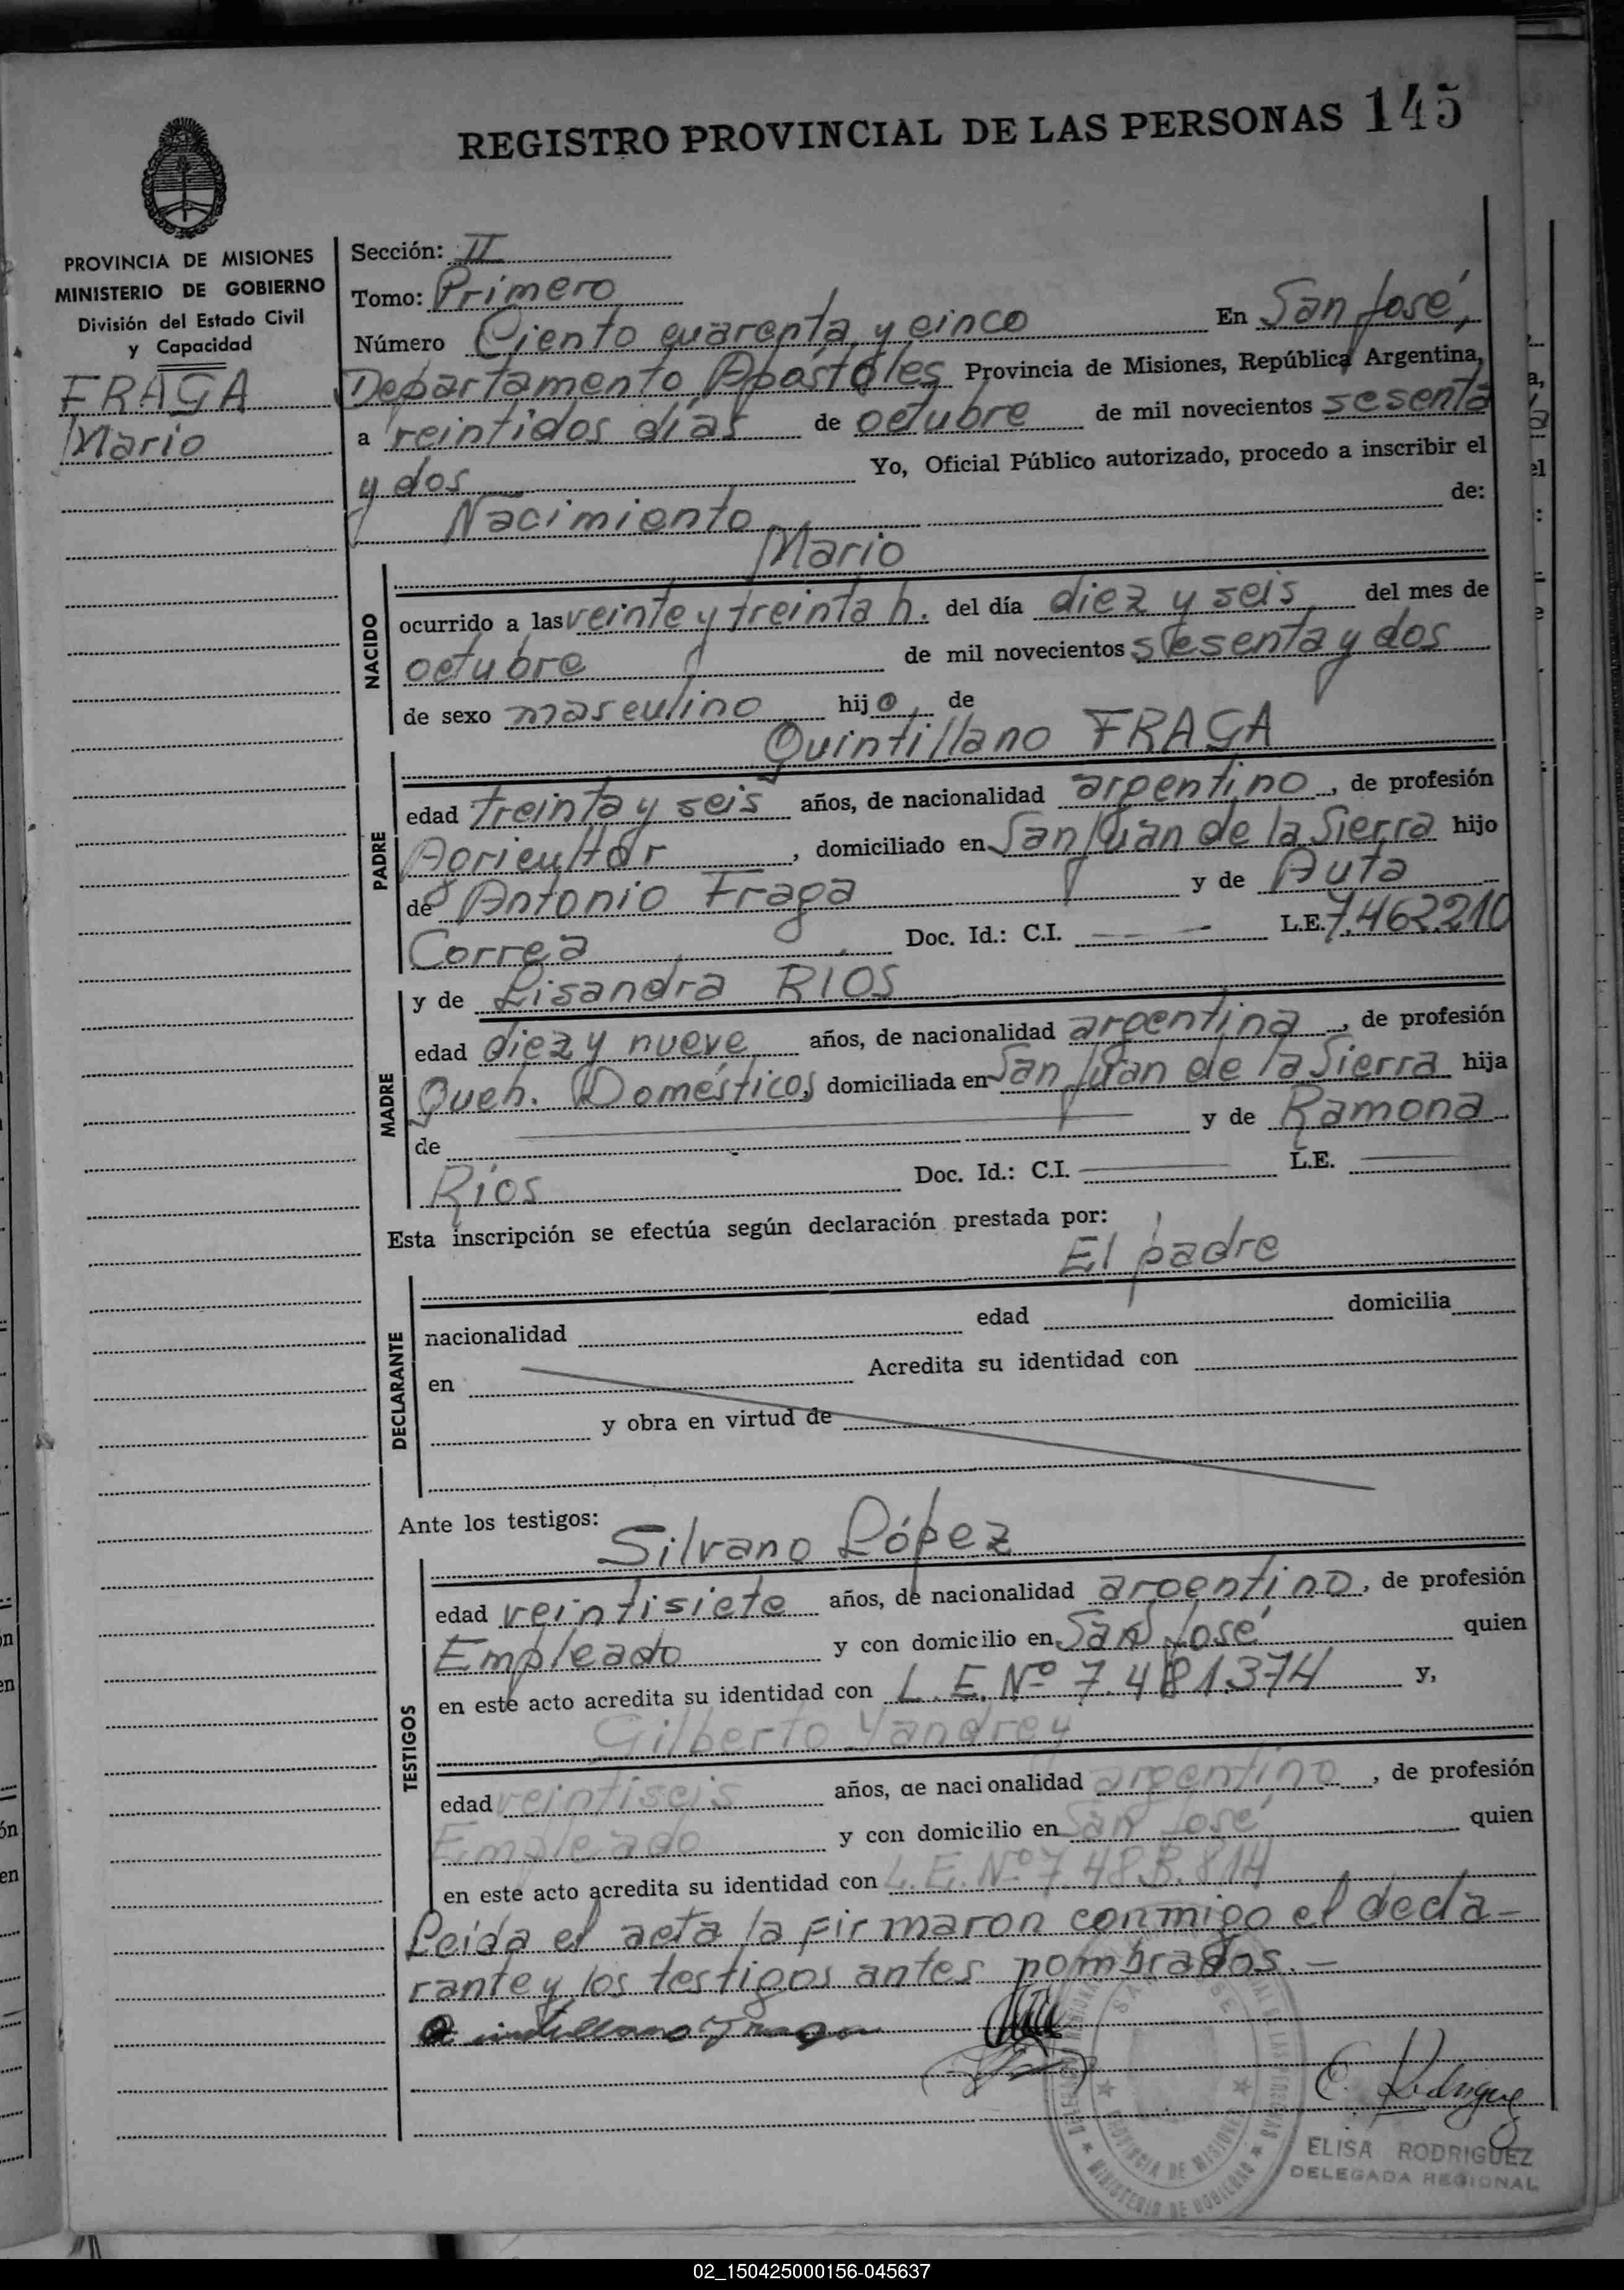 REGISTRO PROVINCIAL DE LAS PERSONAS 145
PROVINCIA DE MISIONES
MINISTERIO DE GOBIERNO
División del Estado Civil
y Capacidad
FRAGA
Mario
Sección: II
Tomo: Primero
Número Ciento cuarenta y cinco En San José,
Departamento Apóstoles Provincia de Misiones, República Argentina,
a veintidos días de octubre de mil novecientos sesenta
y dos Yo, Oficial Público autorizado, procedo a inscribir el
Nacimiento de:
Mario
NACIDO
ocurrido a las veinte y treinta h. del día diez y seis del mes de
octubre de mil novecientos sesenta y dos
de sexo masculino hijo de
Quintillano FRAGA
PADRE
edad treinta y seis años, de nacionalidad argentino, de profesión
Agricultor, domiciliado en San Juan de la Sierra hijo
de Antonio Fraga y de Auta
Correa Doc. Id.: C.I. — L.E. 7.462.210
y de Lisandra RIOS
MADRE
edad diez y nueve años, de nacionalidad argentina, de profesión
Queh. Domésticos, domiciliada en San Juan de la Sierra hija
de — y de Ramona
Ríos Doc. Id.: C.I. — L.E. —
Esta inscripción se efectúa según declaración prestada por:
El padre
DECLARANTE
nacionalidad edad domicilia
en Acredita su identidad con
y obra en virtud de
Ante los testigos:
Silvano López
TESTIGOS
edad veintisiete años, de nacionalidad argentino, de profesión
Empleado y con domicilio en San José quien
en este acto acredita su identidad con L.E. Nº 7.481.374 y,
Gilberto Yandrey
edad veintiseis años, de nacionalidad argentino, de profesión
Empleado y con domicilio en San José quien
en este acto acredita su identidad con L.E. Nº 7.483.814
Leída el acta la firmaron conmigo el decla-
rante y los testigos antes nombrados.—
Quintillano Fraga
E. Rodriguez
PROVINCIA DE MISIONES
MINISTERIO DE GOBIERNO
ELISA RODRIGUEZ
DELEGADA REGIONAL
02_150425000156-045637